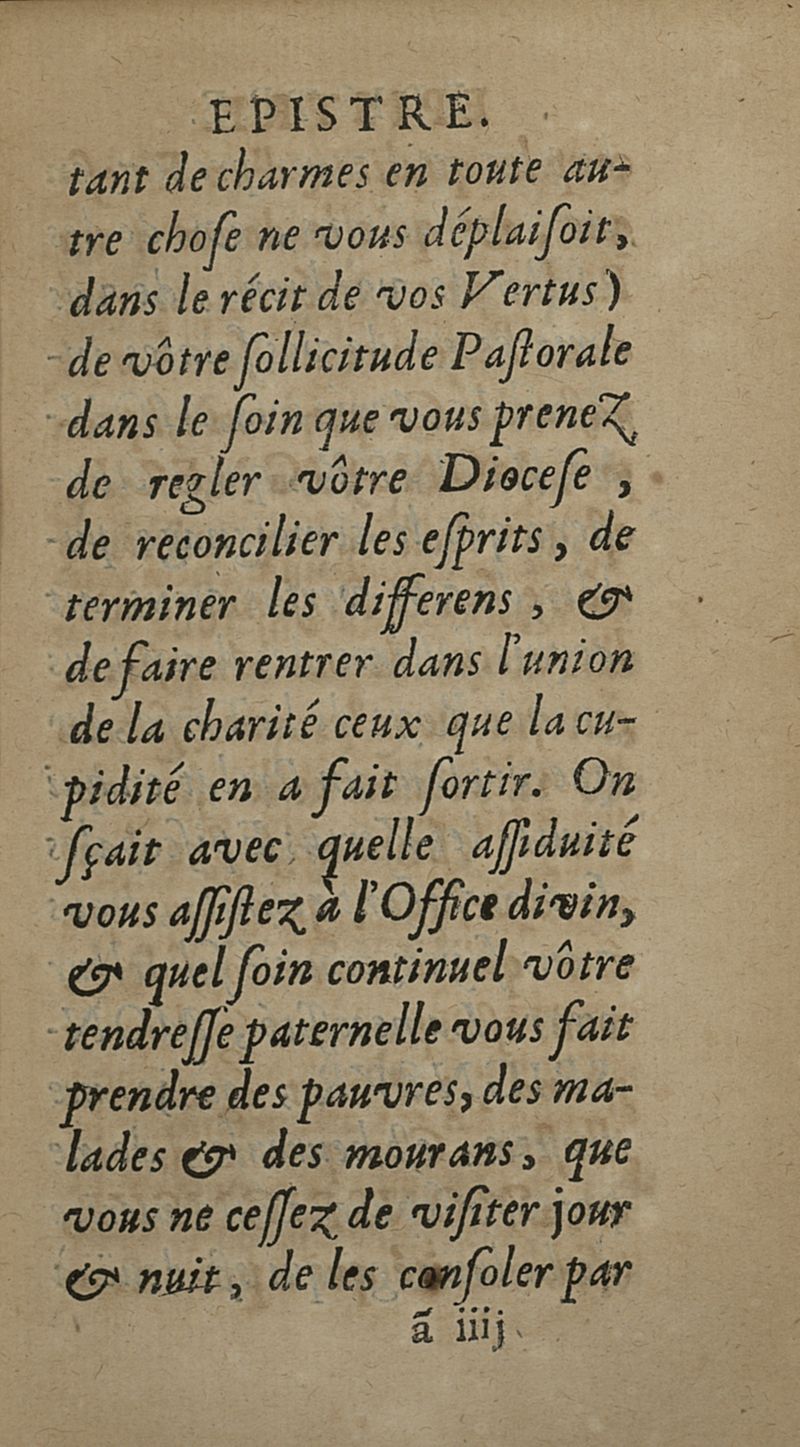 EPISTRE.
tant de charmes en toute au-
tre choſe ne vous déplaiſoit,
dans le récit de vos Vertus)
de vôtre ſollicitude Paſtorale
dans le ſoin que vous prenez
de regler vôtre Dioceſe ,
de reconcilier les eſprits, de
terminer les differens , &
de faire rentrer dans l'union
de la charité ceux que la cu-
pidité en a fait ſortir. On
ſçait avec quelle aſſiduité
vous aſſiſtez à l'Office divin,
& quel ſoin continuel vôtre
tendreſſe paternelle vous fait
prendre des pauvres, des ma-
lades & des mourans, que
vous ne ceſſez de viſiter jour
& nuit, de les conſoler par
ã iiij